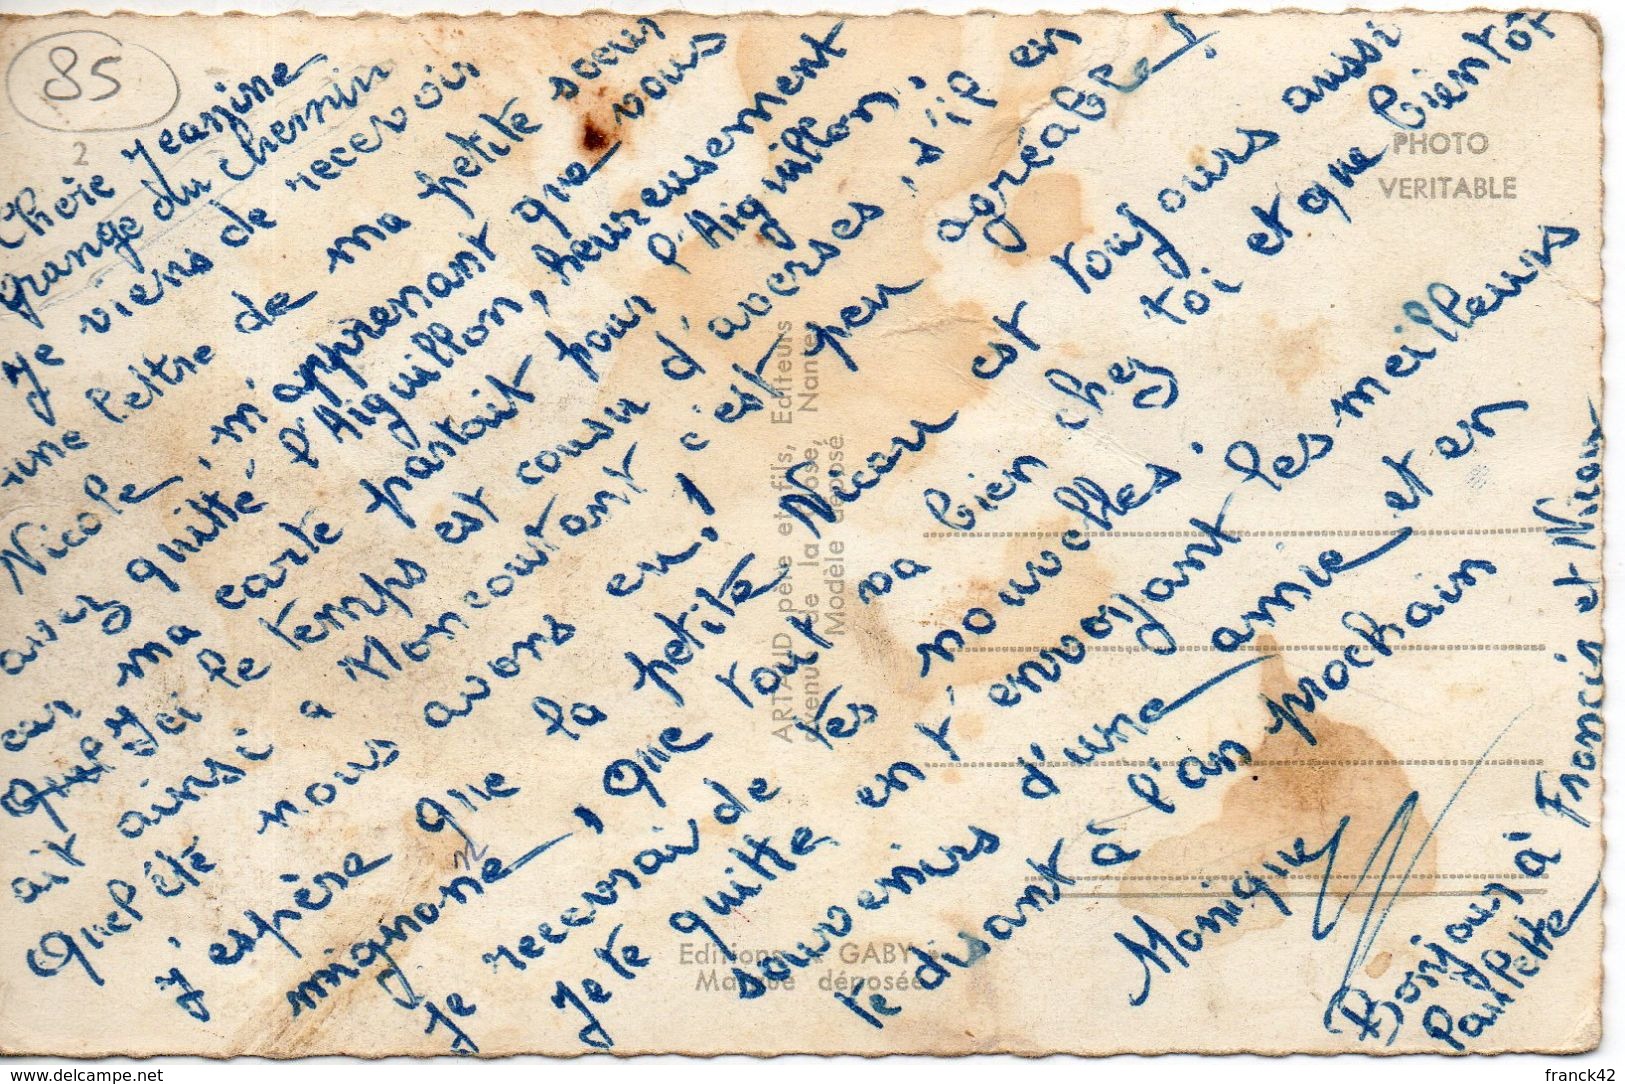 85
2
Chère Jeanine
grange du chemin
Je viens de recevoir
une lettre de ma petite soeur
Nicole, m'apprenant que vous
avez quitté l'Aiguillon, heureusement
car ma carte partait pour l'Aiguillon.
Ici le temps est cousu d'averses, s'il en
ait ainsi à Moncoutant c'est peu agréable!
Quel été nous avons eu!
J'espère que la petite Nicou est toujours aussi
mignone, que tout va bien chez toi et que bientôt
je recevrai de tes nouvelles.
Je te quitte en t'envoyant les meilleurs
souvenirs d'une amie et en
te disant à l'an prochain
Monique
Bonjour à Francis et Nicou
PHOTO
VERITABLE
ARTAUD père et fils, Editeurs
avenue de la Close, Nantes
Modèle déposé
Editions GABY
Marque déposée
www.delcampe.net
franck42